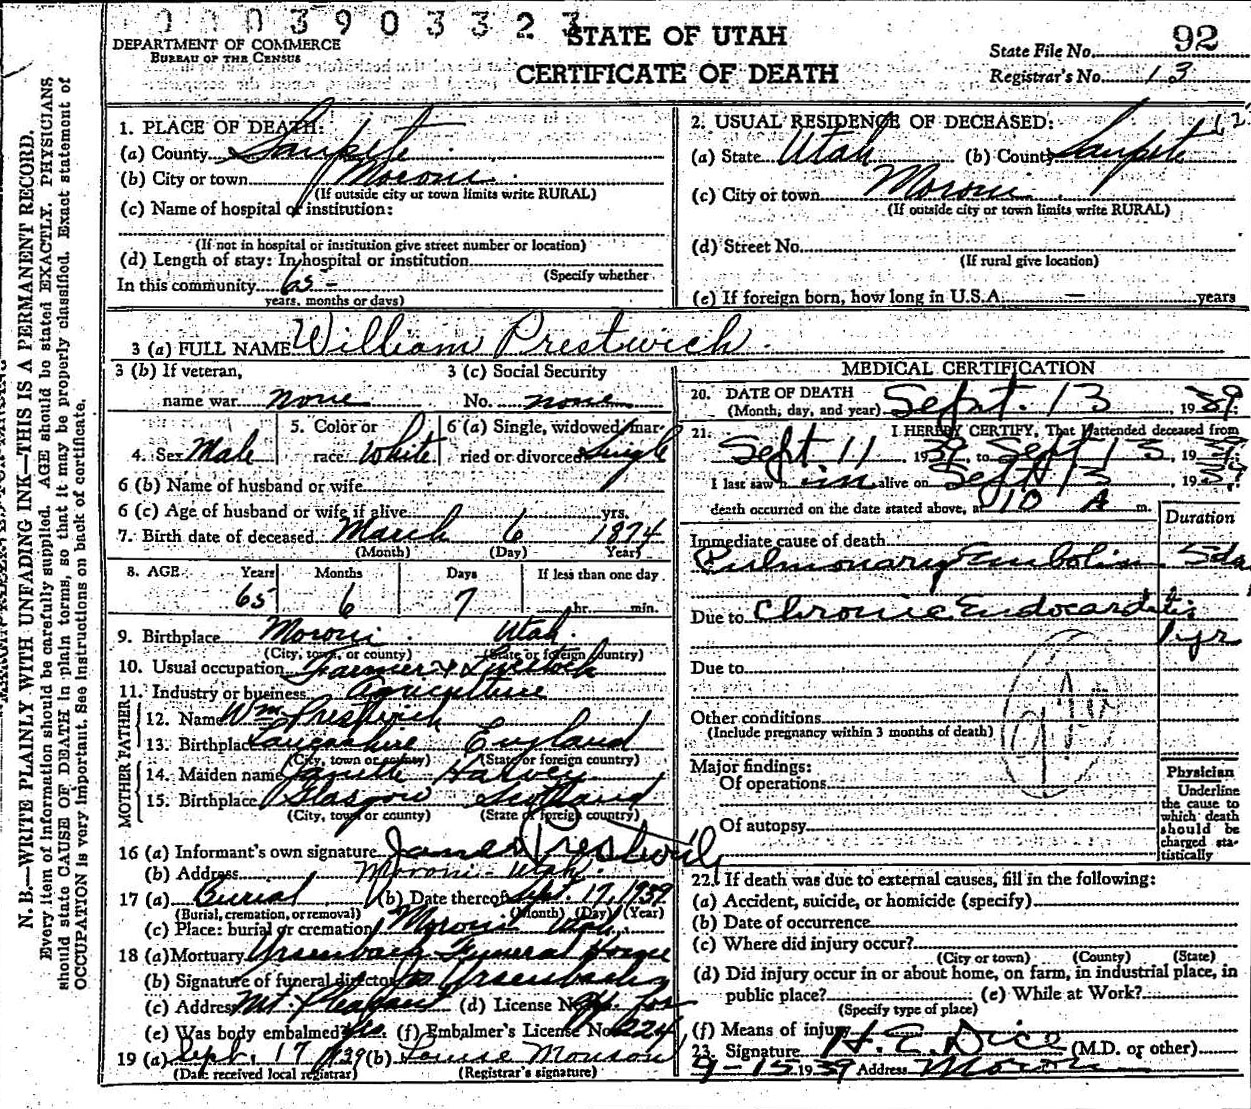 0003903323
STATE OF UTAH
CERTIFICATE OF DEATH
DEPARTMENT OF COMMERCE
BUREAU OF THE CENSUS
State File No. 92
Registrar's No. 13
N. B.—WRITE PLAINLY WITH UNFADING INK—THIS IS A PERMANENT RECORD.
Every item of information should be carefully supplied. AGE should be stated EXACTLY. PHYSICIANS
should state CAUSE OF DEATH in plain terms, so that it may be properly classified. Exact statement of
OCCUPATION is very important. See instructions on back of certificate.
1. PLACE OF DEATH:
(a) County Sanpete
(b) City or town Moroni
(If outside city or town limits write RURAL)
(c) Name of hospital or institution:
(If not in hospital or institution give street number or location)
(d) Length of stay: In hospital or institution
(Specify whether
In this community 65 -
years, months or days)
2. USUAL RESIDENCE OF DECEASED:
(a) State Utah (b) County Sanpete
(c) City or town Moroni
(If outside city or town limits write RURAL)
(d) Street No.
(If rural give location)
(e) If foreign born, how long in U.S.A. — years
3 (a) FULL NAME William Prestwich
3 (b) If veteran,
name war none
3 (c) Social Security
No. none
4. Sex Male
5. Color or
race White
6 (a) Single, widowed, mar-
ried or divorced Single
6 (b) Name of husband or wife
6 (c) Age of husband or wife if alive yrs.
7. Birth date of deceased March 6 1874
(Month) (Day) (Year)
8. AGE Years Months Days If less than one day
65 6 7 hr. min.
9. Birthplace Moroni Utah
(City, town, or county) (State or foreign country)
10. Usual occupation Farmer & Livestock
11. Industry or business Agriculture
FATHER
12. Name Wm Prestwich
13. Birthplace Lancashire England
(City, town or county) (State or foreign country)
MOTHER
14. Maiden name Harvey
15. Birthplace Glasgow Scotland
(City, town or county) (State or foreign country)
16 (a) Informant's own signature James Prestwich
(b) Address Moroni Utah
17 (a) Burial (b) Date thereof Sept. 17, 1939
(Burial, cremation, or removal) (Month) (Day) (Year)
(c) Place: burial or cremation Moroni Utah
18 (a) Mortuary Ursenbach Funeral Home
(b) Signature of funeral director Ursenbach
(c) Address Mt. Pleasant (d) License No.
(e) Was body embalmed? Yes. (f) Embalmer's License No. 224
19 (a) Sept. 17 1939 (b) Louise Monson
(Date received local registrar) (Registrar's signature)
MEDICAL CERTIFICATION
20. DATE OF DEATH
(Month, day, and year) Sept. 13, 1939
21. I HEREBY CERTIFY, That I attended deceased from
Sept 11 1939, to Sept 13, 1939
I last saw him alive on Sept 13, 1939
death occurred on the date stated above, at 10 A m.
Duration
Immediate cause of death
Pulmonary Embolism 5 da
Due to Chronic Endocarditis
1 yr
Due to
Other conditions
(Include pregnancy within 3 months of death)
Major findings:
Of operations
Of autopsy
Physician
Underline
the cause to
which death
should be
charged sta-
tistically
22. If death was due to external causes, fill in the following:
(a) Accident, suicide, or homicide (specify)
(b) Date of occurrence
(c) Where did injury occur?
(City or town) (County) (State)
(d) Did injury occur in or about home, on farm, in industrial place, in
public place? (e) While at Work?
(Specify type of place)
(f) Means of injury
23. Signature H. E. Dice (M.D. or other)
9-15 1939 Address Moroni